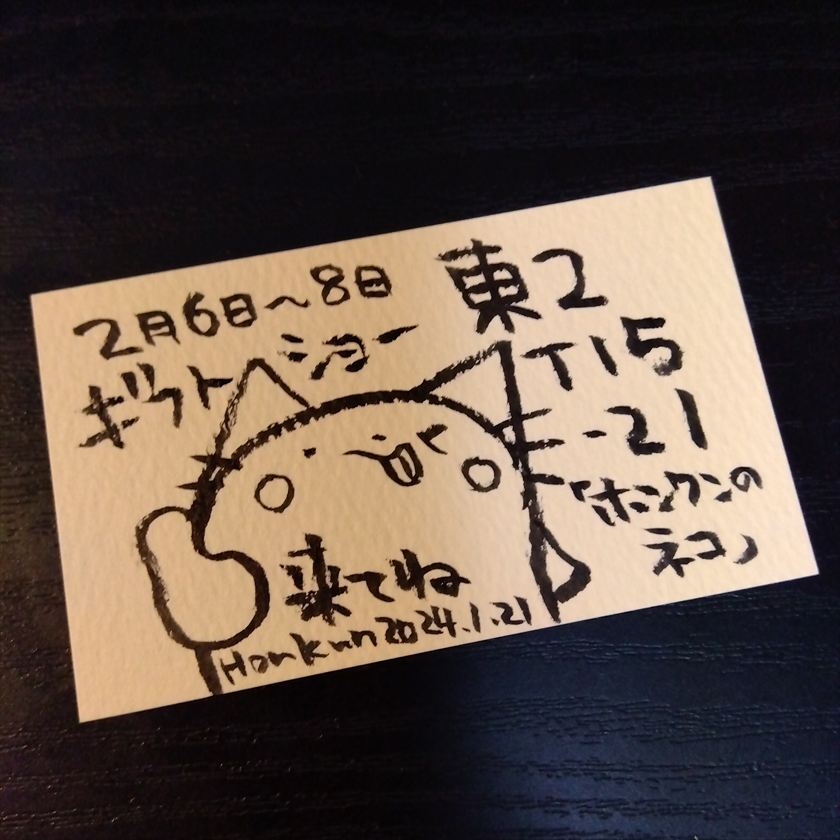 2月6日〜8日
ギフトショー
東2
T15
-21
「ホンクンの
ネコ」
来てね
Honkun 2024.1.21